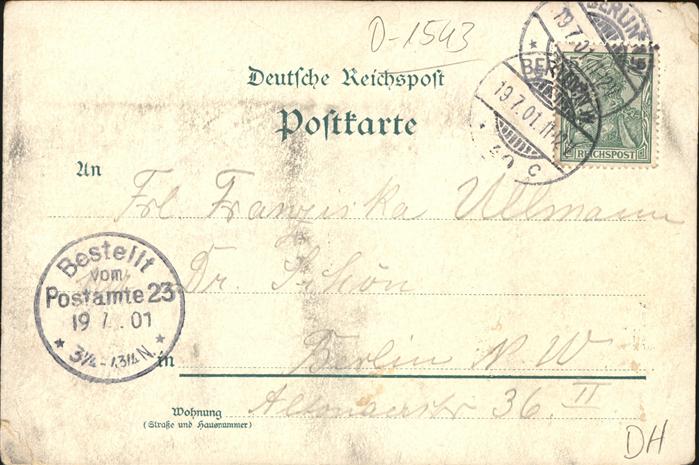 D-1543
Deutsche Reichspost
Postkarte
BERLIN
19.7.01.11-12
BERLIN
19.7.01.11-12
C
REICHSPOST
An
Frl Franziska Ullmann
Dr. Schön
Bestellt
vom
Postamte 23
19 7. 01
3¼-4¾N.
in Berlin N.W.
Wohnung Altonaerstr 36. II
(Straße und Hausnummer)
DH